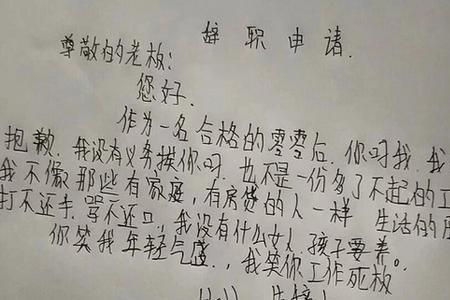 辞职申请.
尊敬的老板:
您好.
作为一名合格的零零后.你吗我.我
抱歉.我没有义务挨你吗.也不是一份多了不起的工
我不像那些有家庭,有房贷的人一样 生活的压
打不还手.骂不还口,我没有什么女人孩子要养。
你笑我年轻气盛.,我笑你工作死板